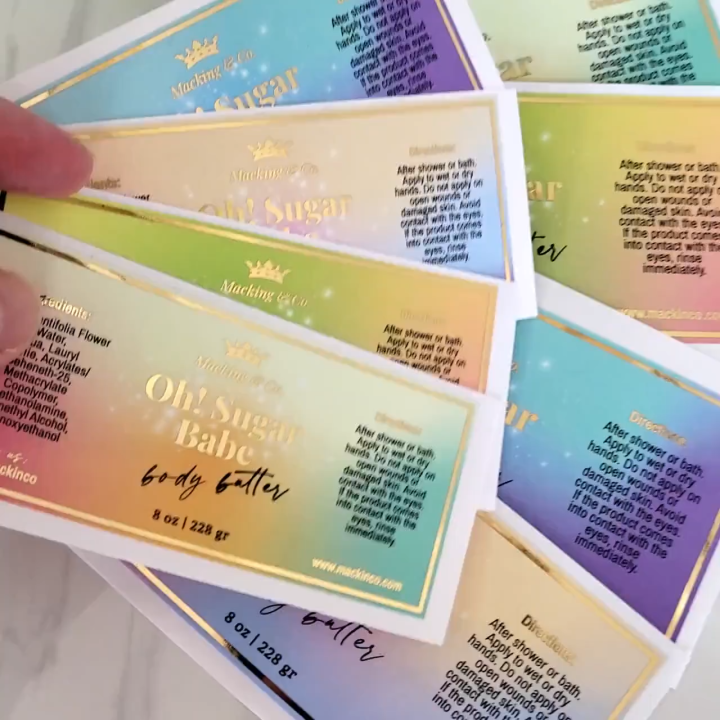 Macking & Co.
Oh! Sugar
After shower or bath.
Apply to wet or dry
hands. Do not apply on
open wounds or
damaged skin. Avoid
contact with the eyes.
If the product comes
into contact with the
eyes, rinse
After shower or bath.
Apply to wet or dry
hands. Do not apply on
open wounds or
damaged skin. Avoid
into contact with the eyes.
Macking & Co.
Oh! Sugar
After shower or bath.
Apply to wet or dry
hands. Do not apply on
open wounds or
damaged skin. Avoid
contact with the eyes.
If the product comes
into contact with the
eyes, rinse
immediately.
After shower or bath.
Apply to wet or dry
hands. Do not apply on
open wounds or
damaged skin. Avoid
contact with the eyes.
If the product comes
into contact with the
eyes, rinse
immediately.
www.mackinco.
Macking & Co
After shower or bath.
Apply to wet or dry
hands. Do not apply on
open wounds or
Flower
Water,
Lauryl
Acrylates/
Methacrylate
Copolymer,
Alcohol,
Macking & Co.
Oh! Sugar
Babe
body butter
8 oz | 228 gr
Directions:
After shower or bath.
Apply to wet or dry
hands. Do not apply on
open wounds or
damaged skin. Avoid
contact with the eyes.
If the product comes
into contact with the
eyes, rinse
immediately.
www.mackinco.com
Directions:
After shower or bath.
Apply to wet or dry
hands. Do not apply on
open wounds or
damaged skin. Avoid
contact with the eyes.
If the product comes
into contact with the
eyes, rinse
immediately.
body butter
8 oz | 228 gr
Directions:
After shower or bath.
Apply to wet or dry
hands. Do not apply on
open wounds or
damaged skin. Avoid
contact with the eyes.
If the product comes
into contact with the